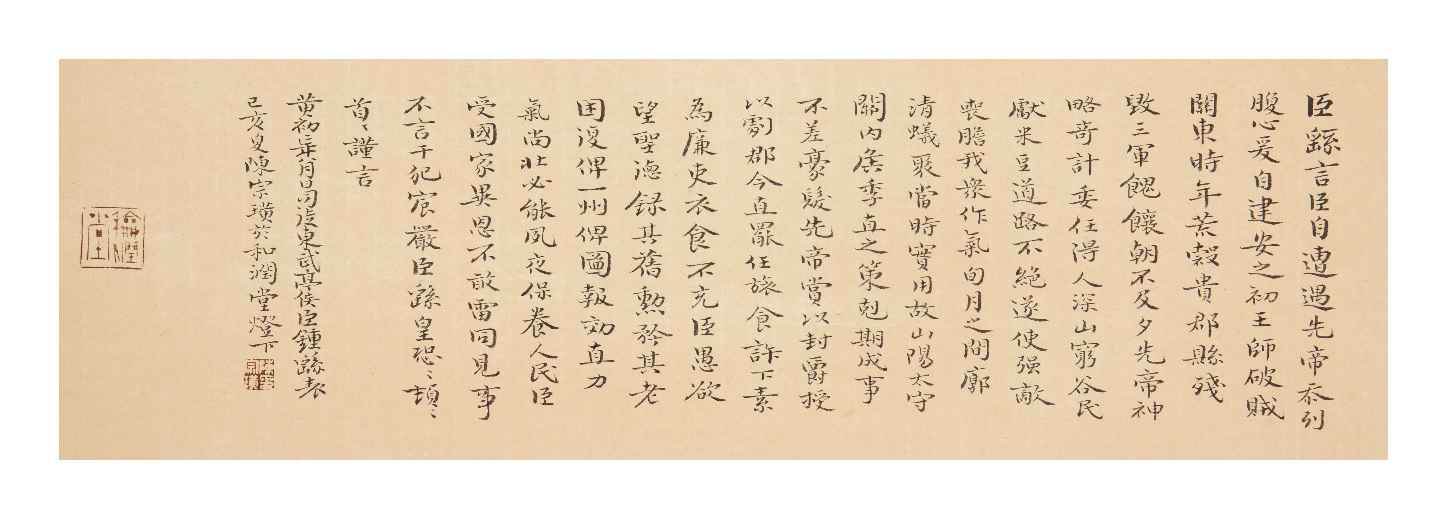 臣繇言臣自遭遇先帝忝列
腹心爰自建安之初王師破賊
關東時年荒穀貴郡縣殘
毀三軍餽饟朝不及夕先帝神
略奇計委任得人深山窮谷民
獻米豆道路不絕遂使强敵
喪膽我衆作氣旬月之間廓
清蟻聚當時實用故山陽太守
關內矦季直之策剋期成事
不差豪髮先帝賞以封爵授
以劇郡今直罷任旅食許下素
為廉吏衣食不充臣愚欲
望聖德錄其舊勳矜其老
困復俾一州俾圖報効直力
氣尚壯必能夙夜保養人民臣
受國家異恩不敢雷同見事
不言干犯宸嚴臣繇皇恐〻頓〻
首〻謹言
黃初年月日司徒東武亭侯臣鍾繇表
己亥夏陳宗璜於和潤堂燈下